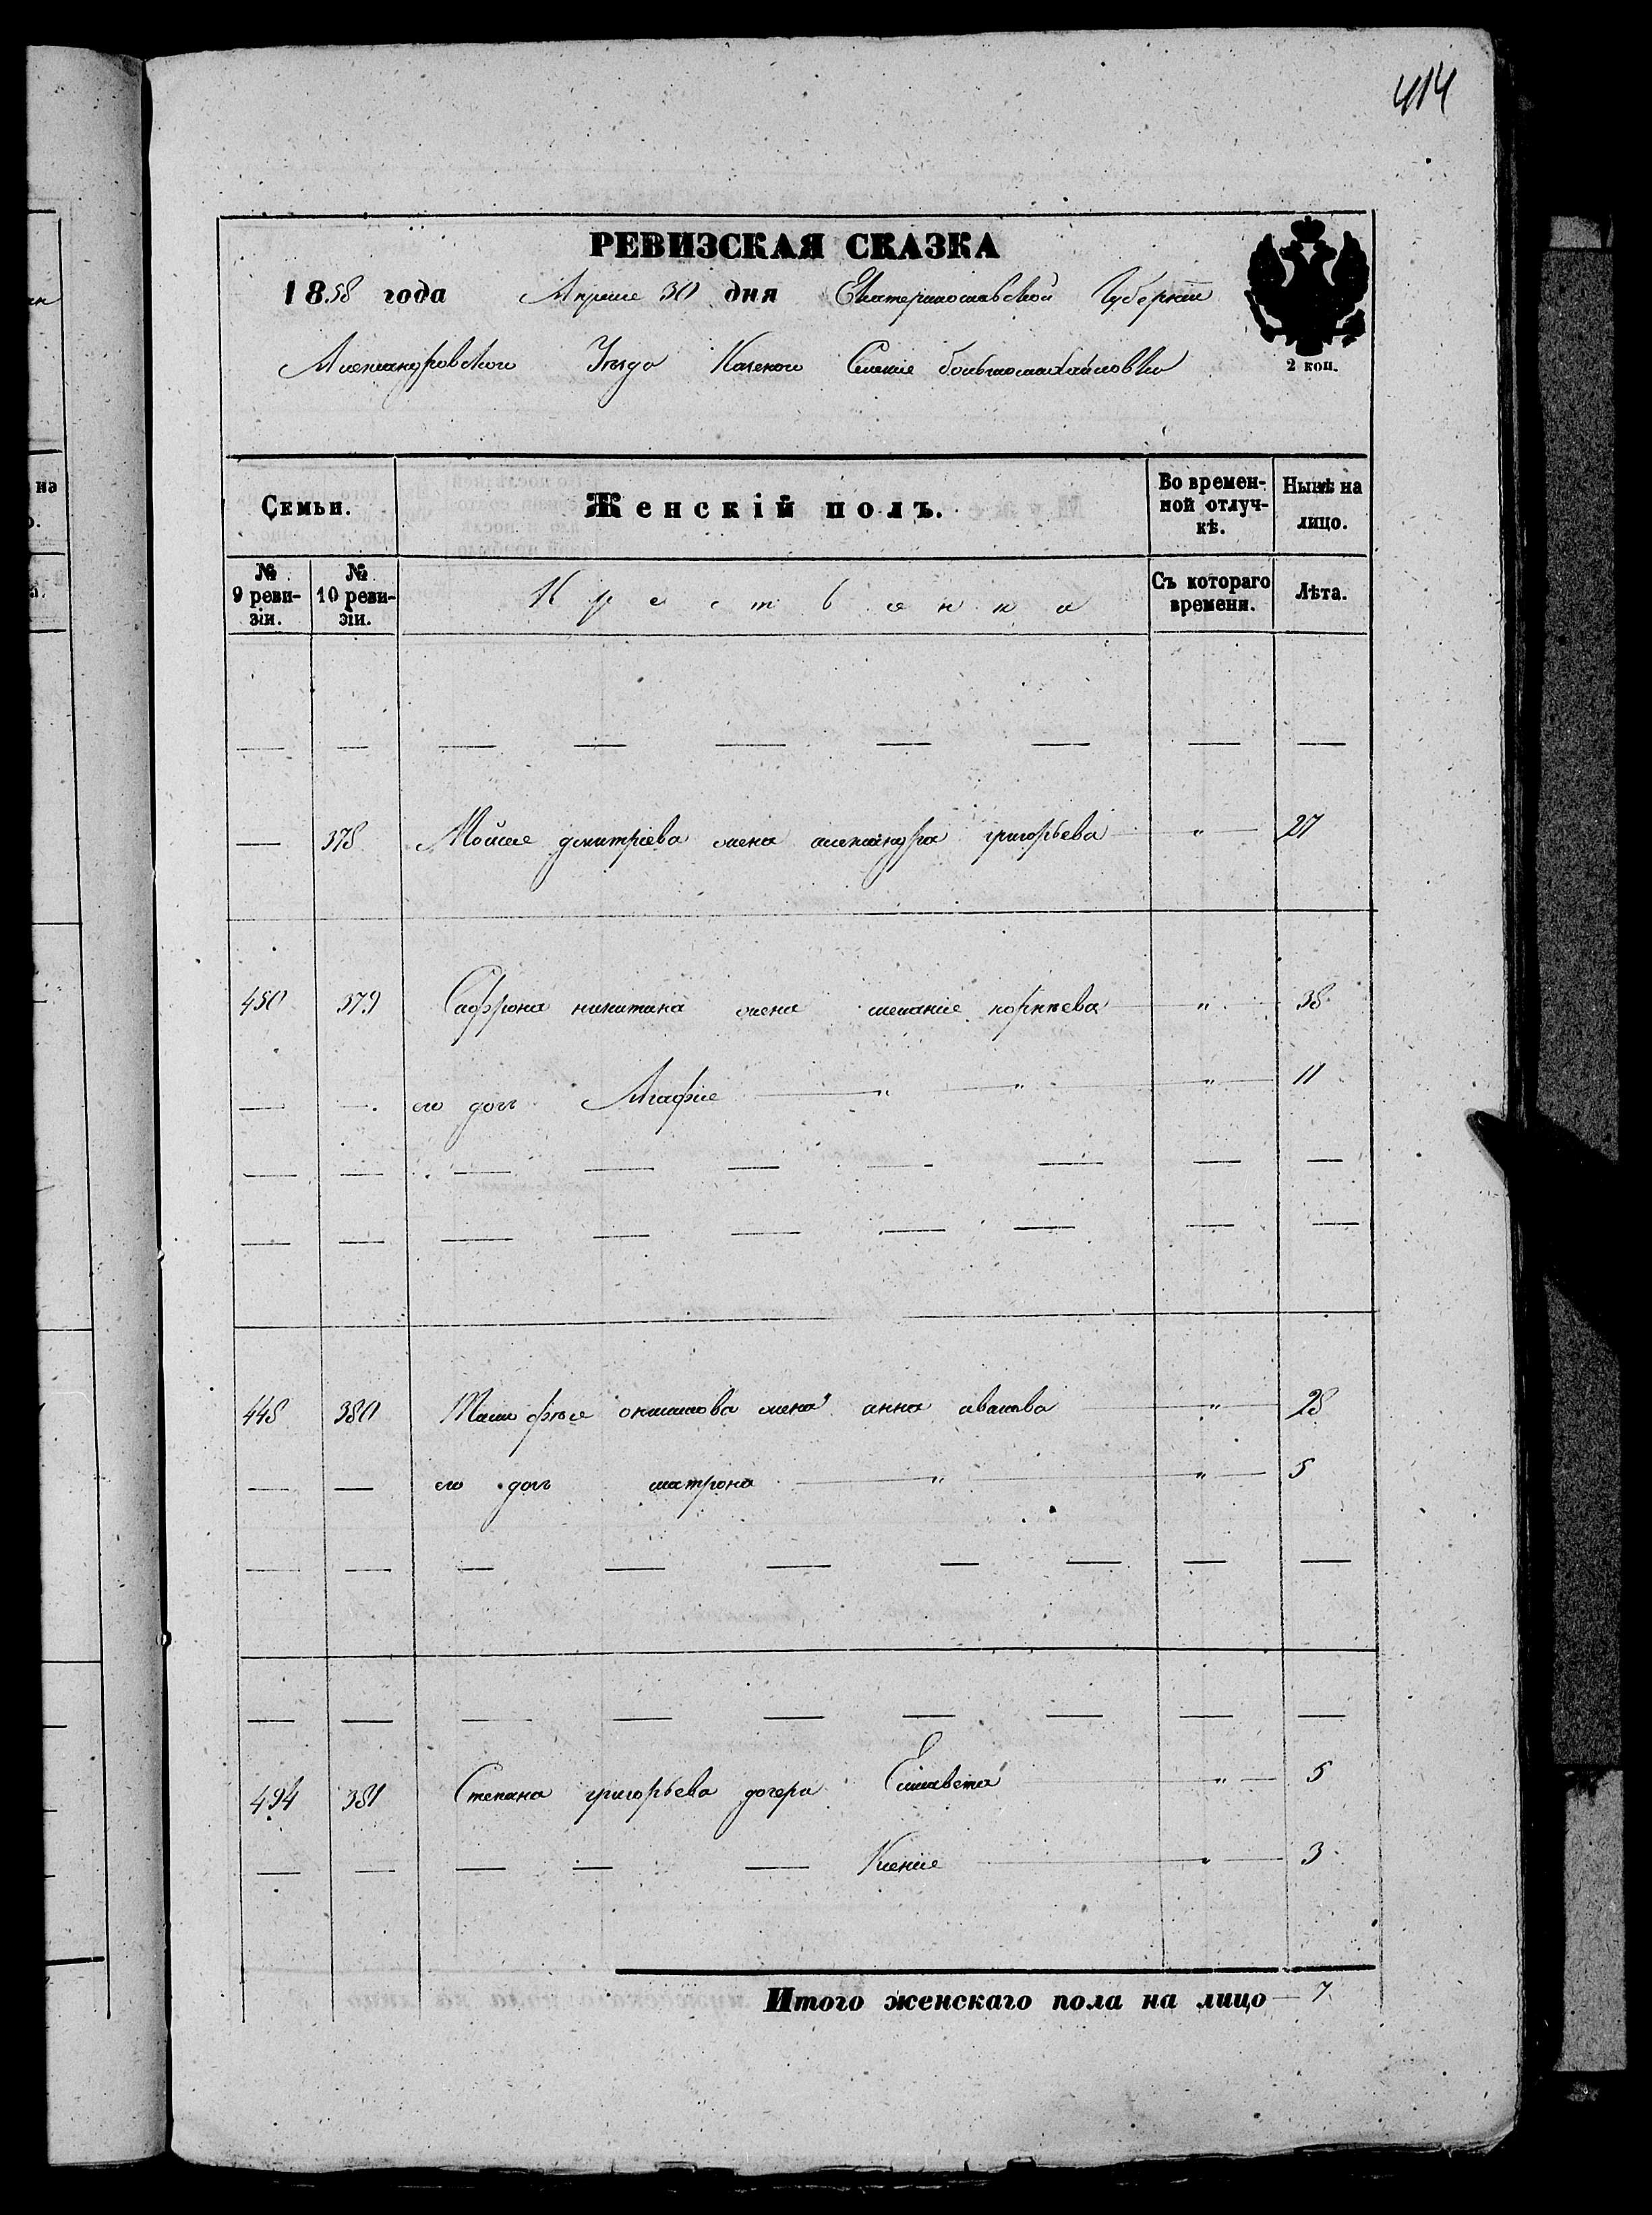 414
РЕВИЗСКАЯ СКАЗКА
1858 года Апреля 30 дня Екатеринославской Губерніи
Александровского Уезда Казеного Селенія большомихайловки
2 коп.
Семьи. Женскій полъ. Во временной отлучкѣ. Нынѣ на лицо.
№ 9 ревизіи. № 10 ревизіи. Крестьянка Съ котораго времени. Лѣта.
— — — — — — — — —
— 378 Мойсея дмитріева жена александра григорьева " 27
450 379 Сафрона никитина жена меланія корнѣева " 38
— — его доч Агафія " " " 11
— — — — — — — — —
— — — — — — — — —
448 380 жена анна " 28
— — его доч матрона " " 5
— — — — — — — — —
— — — — — — — — —
494 381 Степана григорьева дочери Елисавета " 5
— — — — — Ксенія " 3
Итого женскаго пола на лицо 7
на